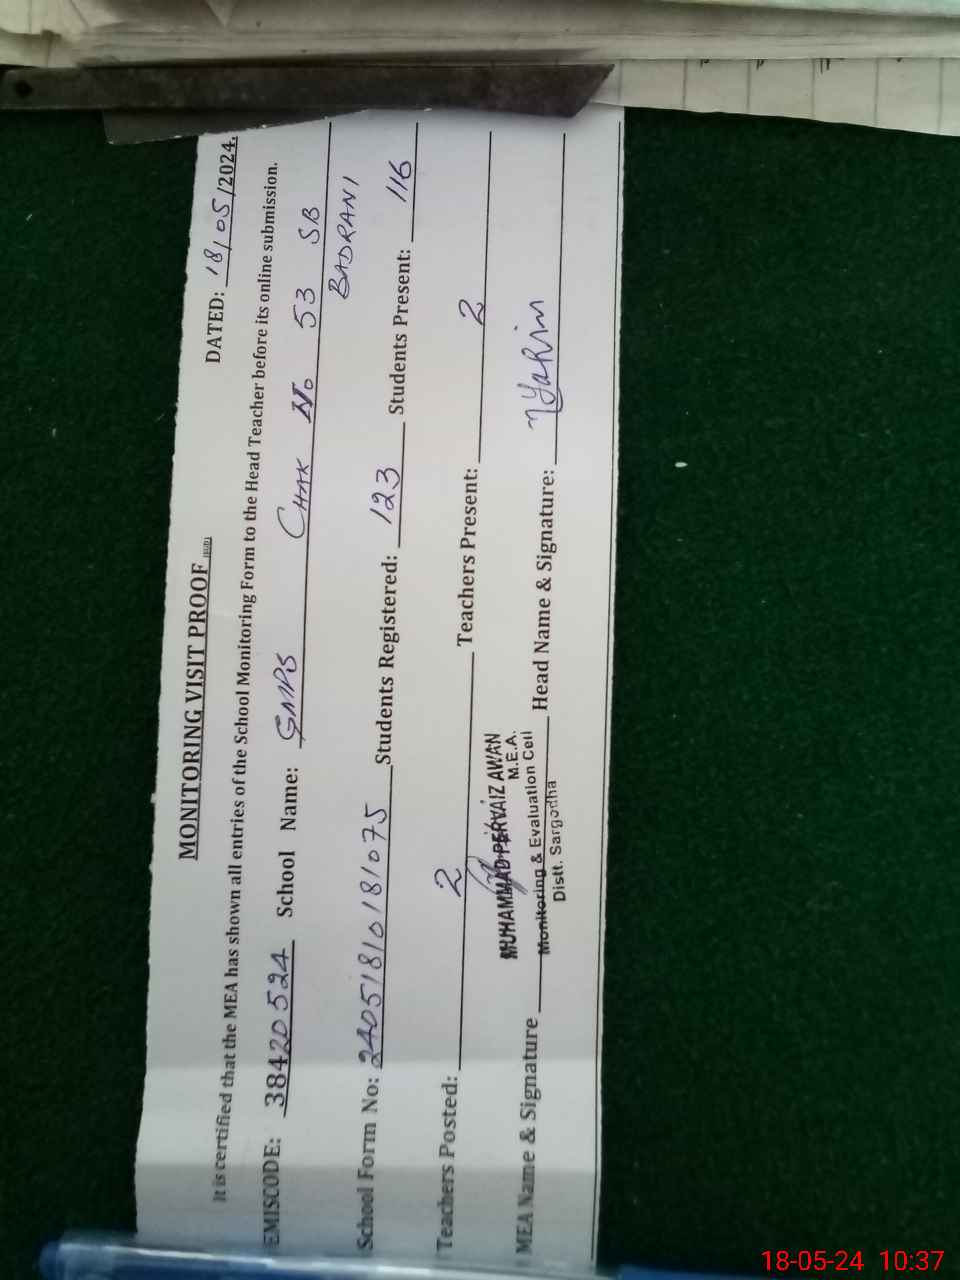 MONITORING VISIT PROOF
DATED: 18/05/2024.
It is certified that the MEA has shown all entries of the School Monitoring Form to the Head Teacher before its online submission.
EMISCODE: 38420524 School Name: GMPS CHAK No 53 SB
BADRANI
School Form No: 24051810181075 Students Registered: 123 Students Present: 116
Teachers Posted: 2 Teachers Present: 2
MEA Name & Signature Head Name & Signature:
MUHAMMAD PERVAIZ AWAN
M.E.A.
Monitoring & Evaluation Cell
Distt. Sargodha
18-05-24 10:37